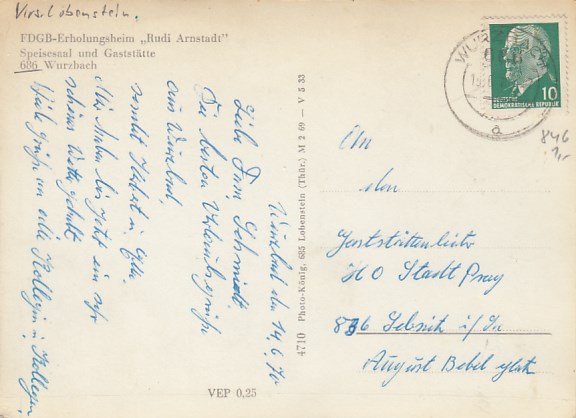 Kreis Lobenstein.
FDGB-Erholungsheim „Rudi Arnstadt"
Speisesaal und Gaststätte
686 Wurzbach
Wurzbach den 19.6.70
Liebe Frau Schmidt
Die besten Urlaubsgrüße
aus Wurzbach
sendet Horst u.
Wir haben bis jetzt ein sehr
schönes Wetter gehabt
Viele Grüße an alle Kollegin u. Kollegen
4710 Photo-König, 685 Lobenstein (Thür.) M 2 69 — V 5 33
VEP 0,25
WURZBACH
a
10
DEUTSCHE
DEMOKRATISCHE REPUBLIK
846
1,-
An
den
Gaststättenleiter
HO Stadt Prag
836 Sebnitz i/Sa
August Bebel